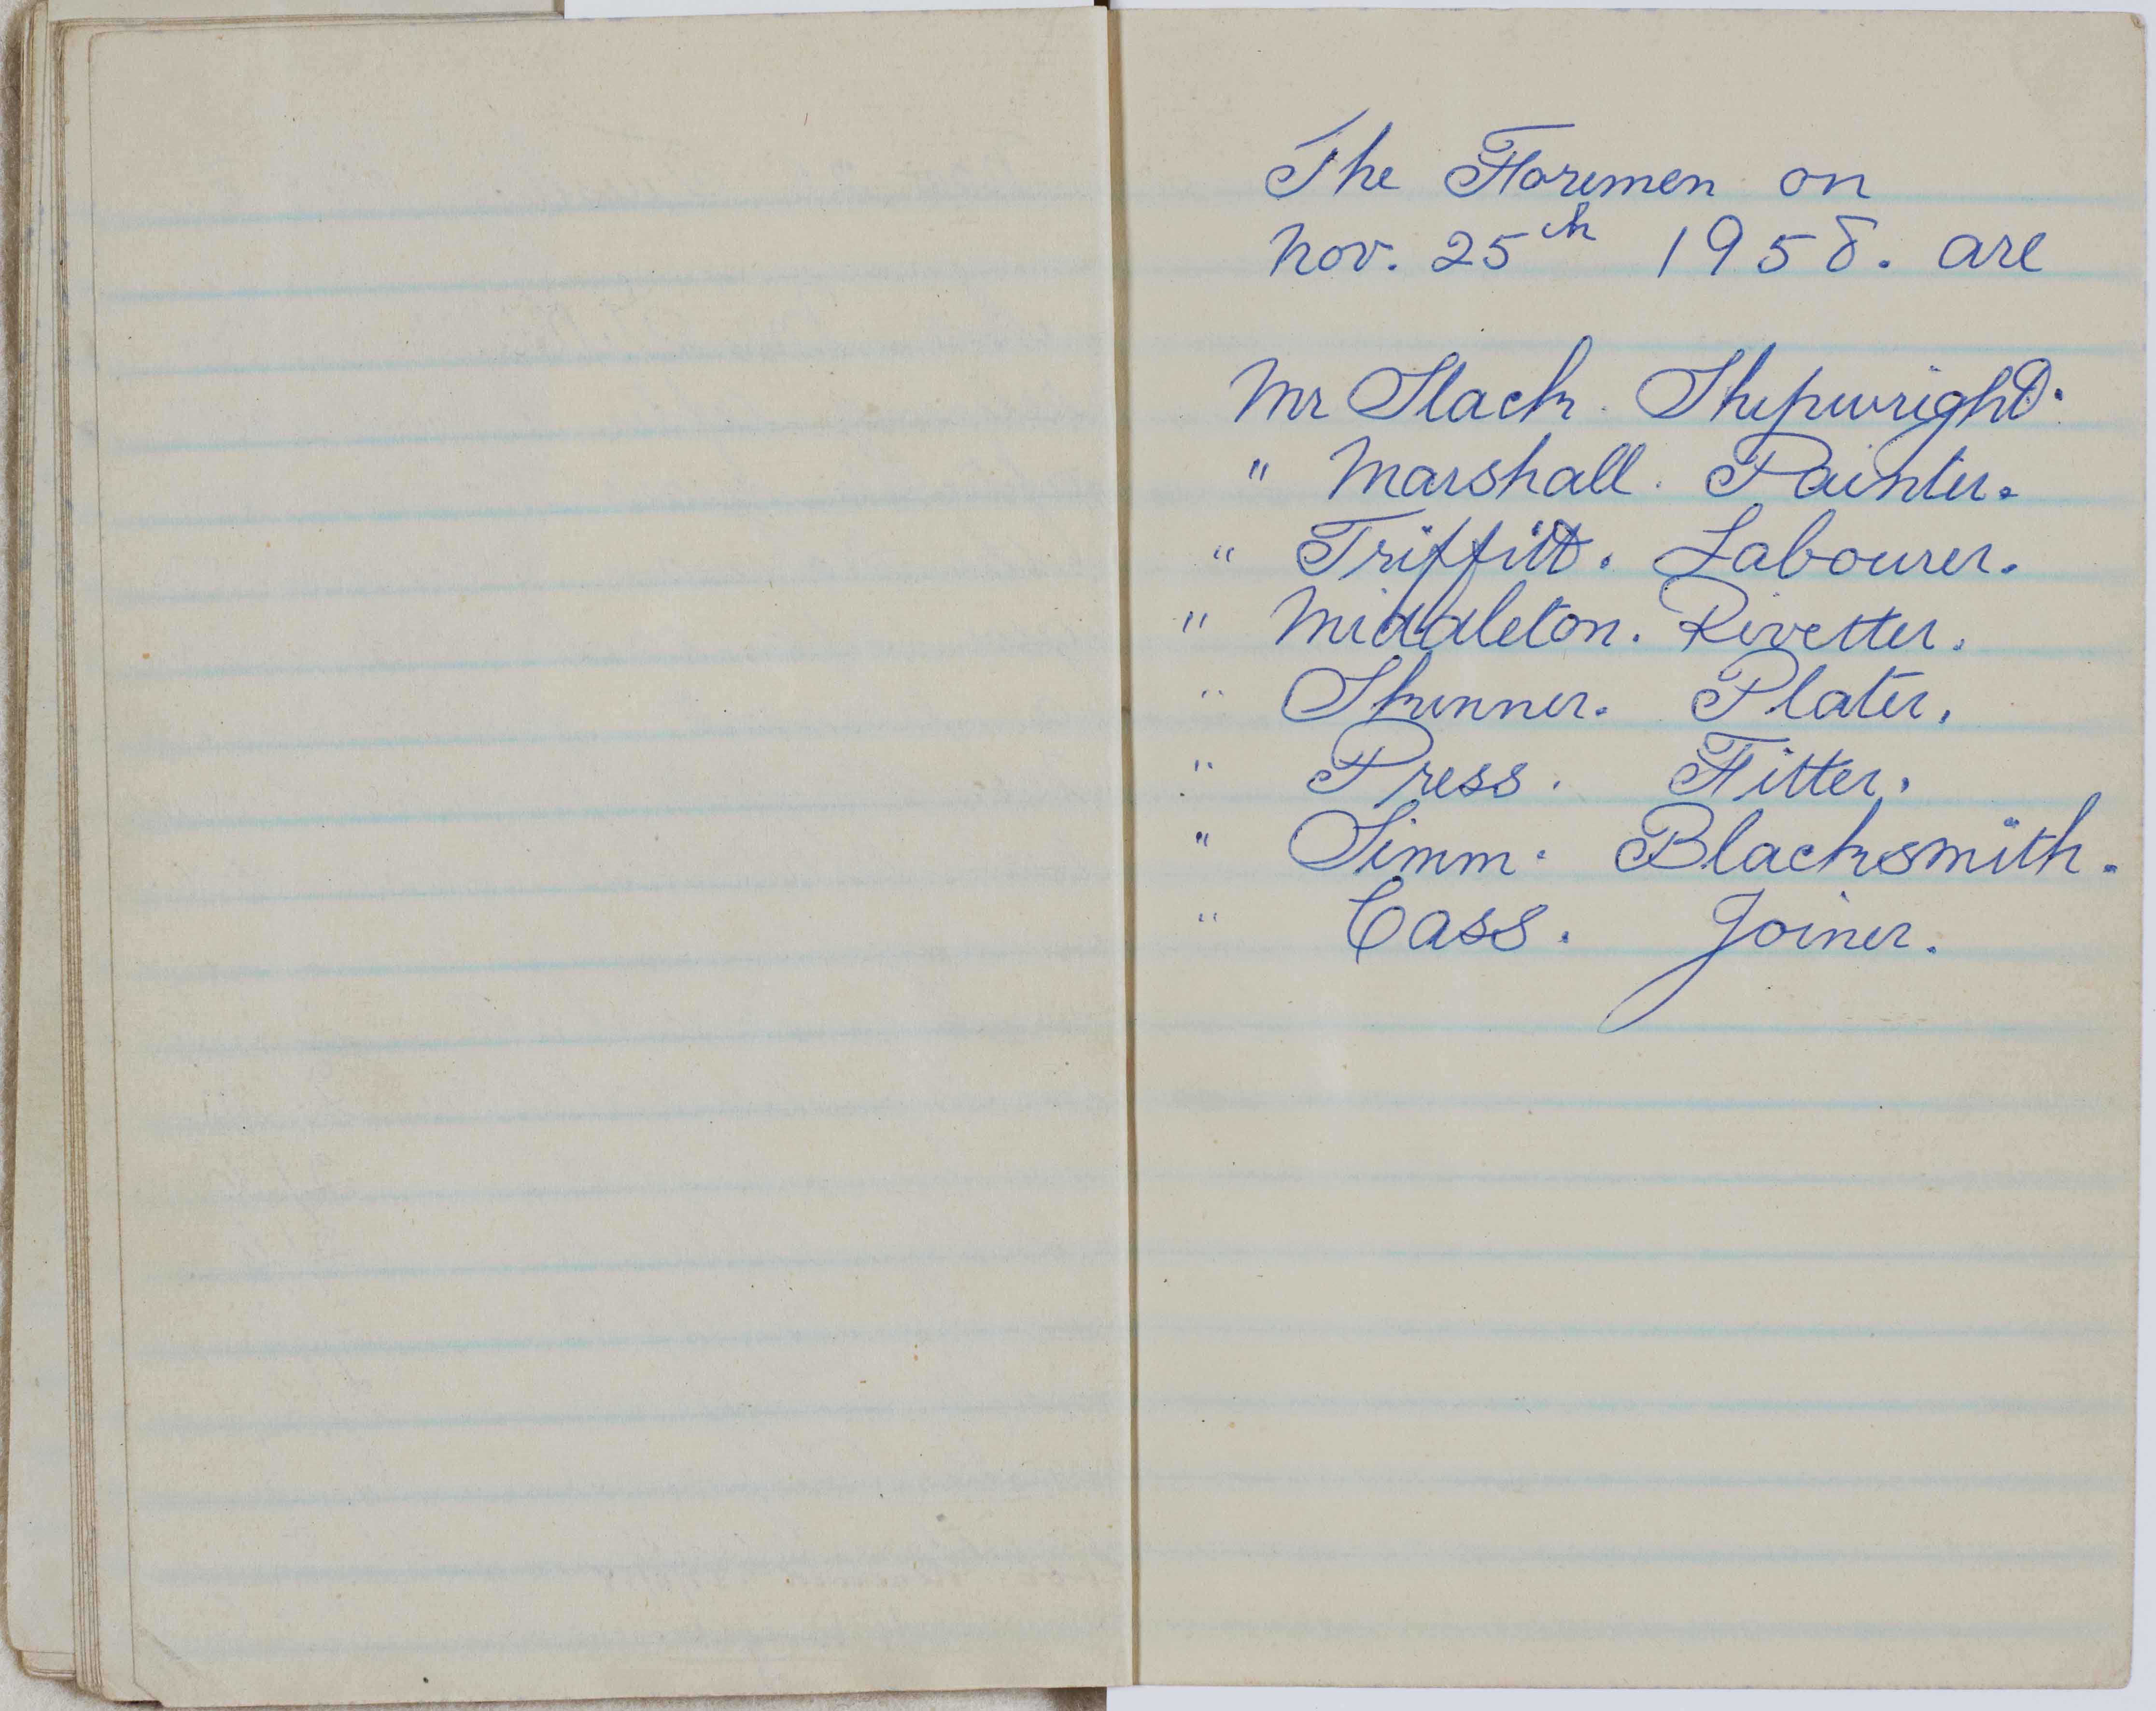 The Foremen on
Nov. 25th 1958. are
Mr Slack. Shipwright.
" Marshall. Painter.
" Triffitt. Labourer.
" Middleton. Rivetter.
" Skinner. Plater.
" Press. Fitter.
" Simm. Blacksmith.
" Cass. Joiner.